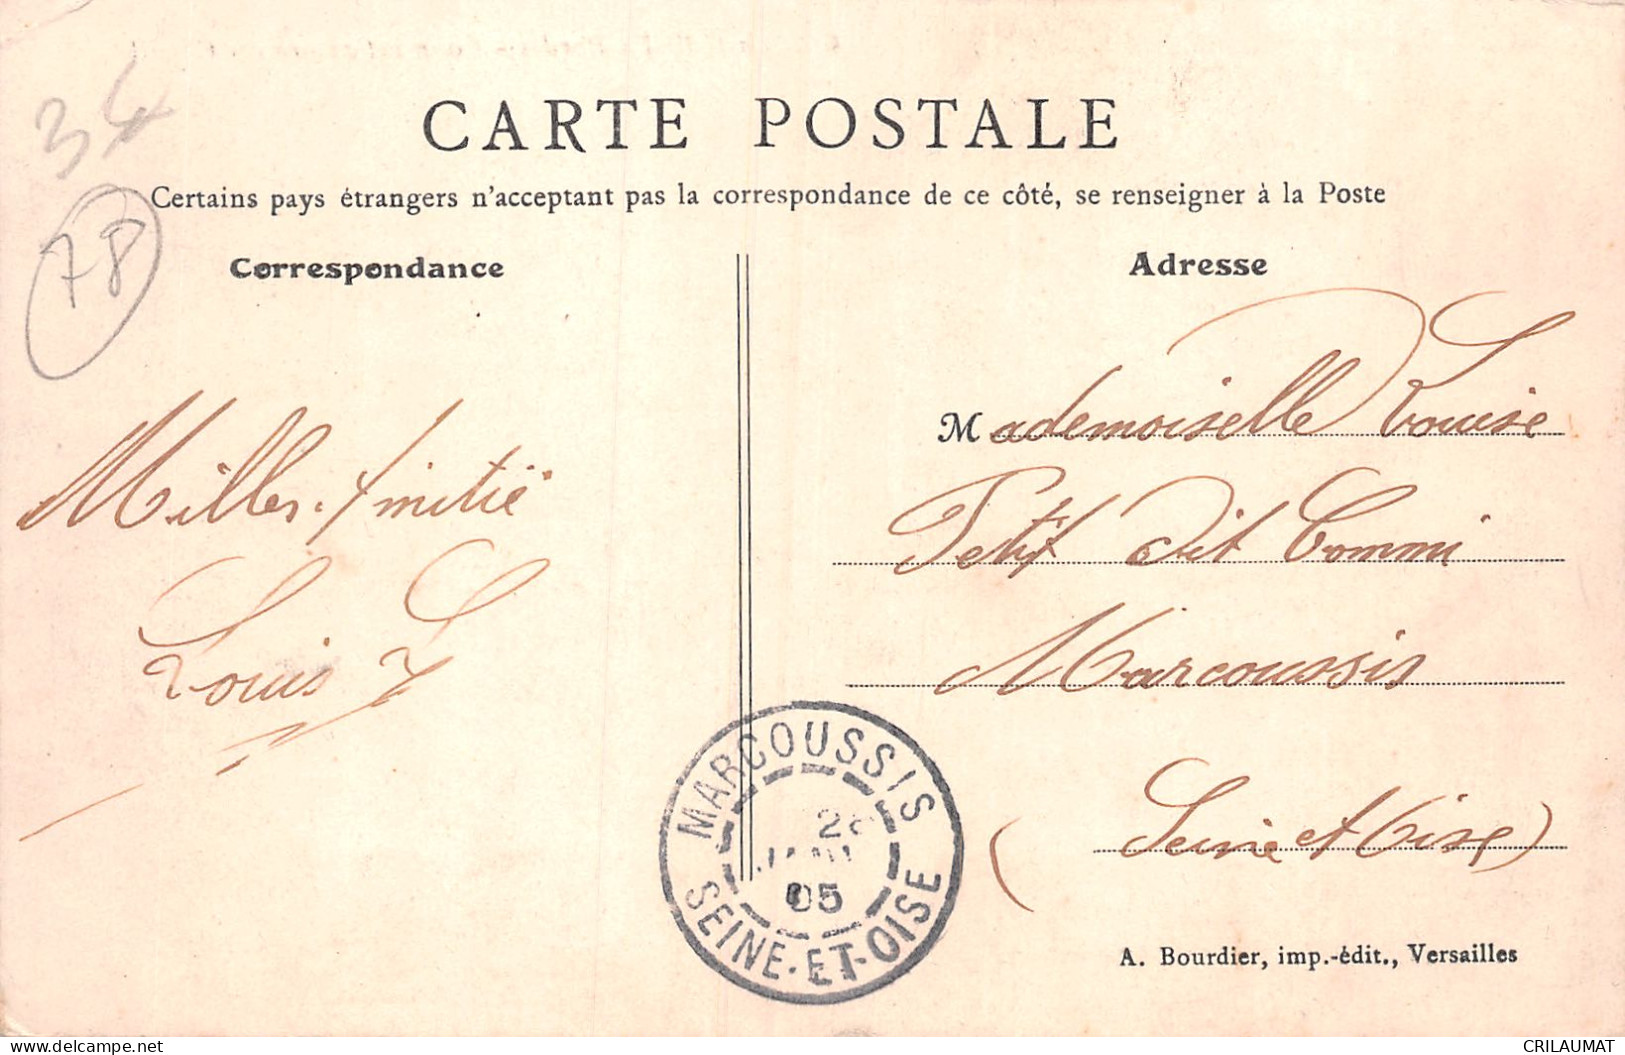 34
78
CARTE POSTALE
Certains pays étrangers n'acceptant pas la correspondance de ce côté, se renseigner à la Poste
Correspondance
Adresse
Milles Amitié
Louis
Mademoiselle Louise
Petit dit Commi
Marcoussis
(Seine et Oise)
MARCOUSSIS
05
SEINE-ET-OISE
A. Bourdier, imp.-édit., Versailles
www.delcampe.net
CRILAUMAT